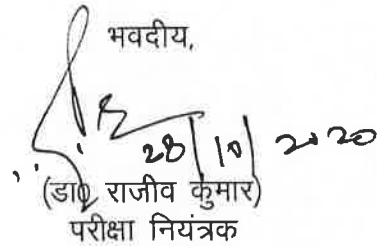 भवदीय,
28/10/2020
(डा0 राजीव कुमार)
परीक्षा नियंत्रक